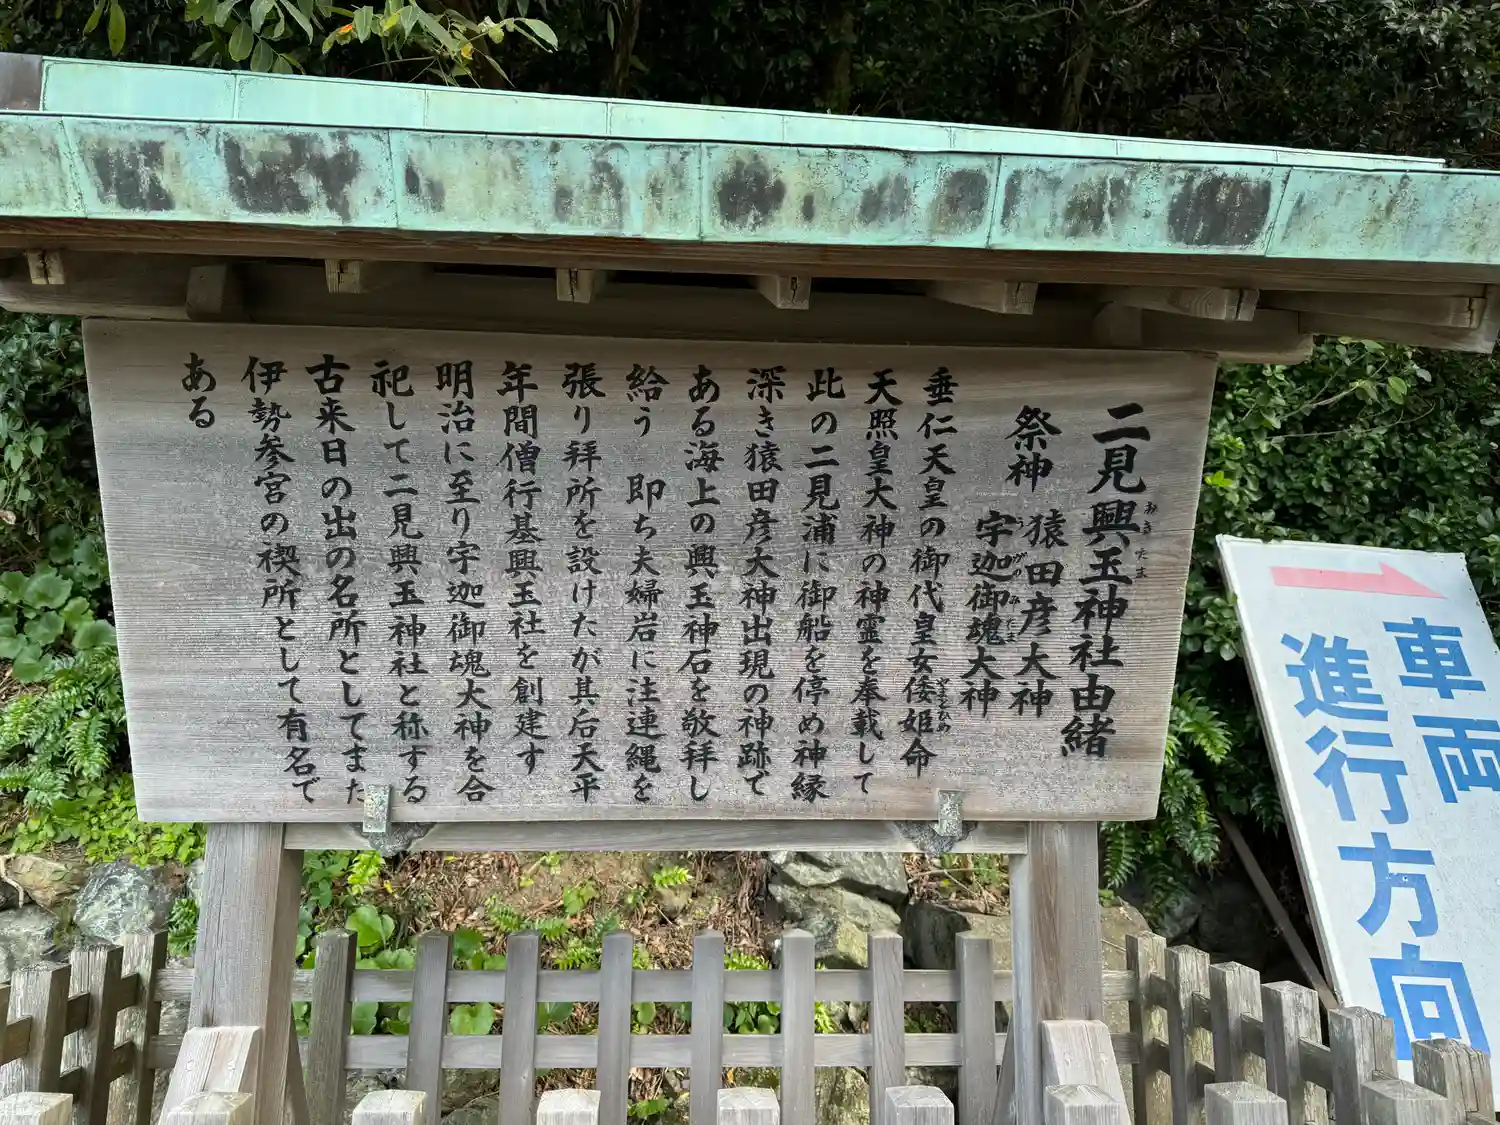 二見興玉神社由緒
おきたま
祭神 猿田彦大神
宇迦御魂大神
うがのみたま
垂仁天皇の御代皇女倭姫命
やまとひめ
天照皇大神の神霊を奉載して
此の二見浦に御船を停め神縁
深き猿田彦大神出現の神跡で
ある海上の興玉神石を敬拝し
給う 即ち夫婦岩に注連縄を
張り拝所を設けたが其后天平
年間僧行基興玉社を創建す
明治に至り宇迦御魂大神を合
祀して二見興玉神社と称する
古来日の出の名所としてまた
伊勢参宮の禊所として有名で
ある
車両
進行方向